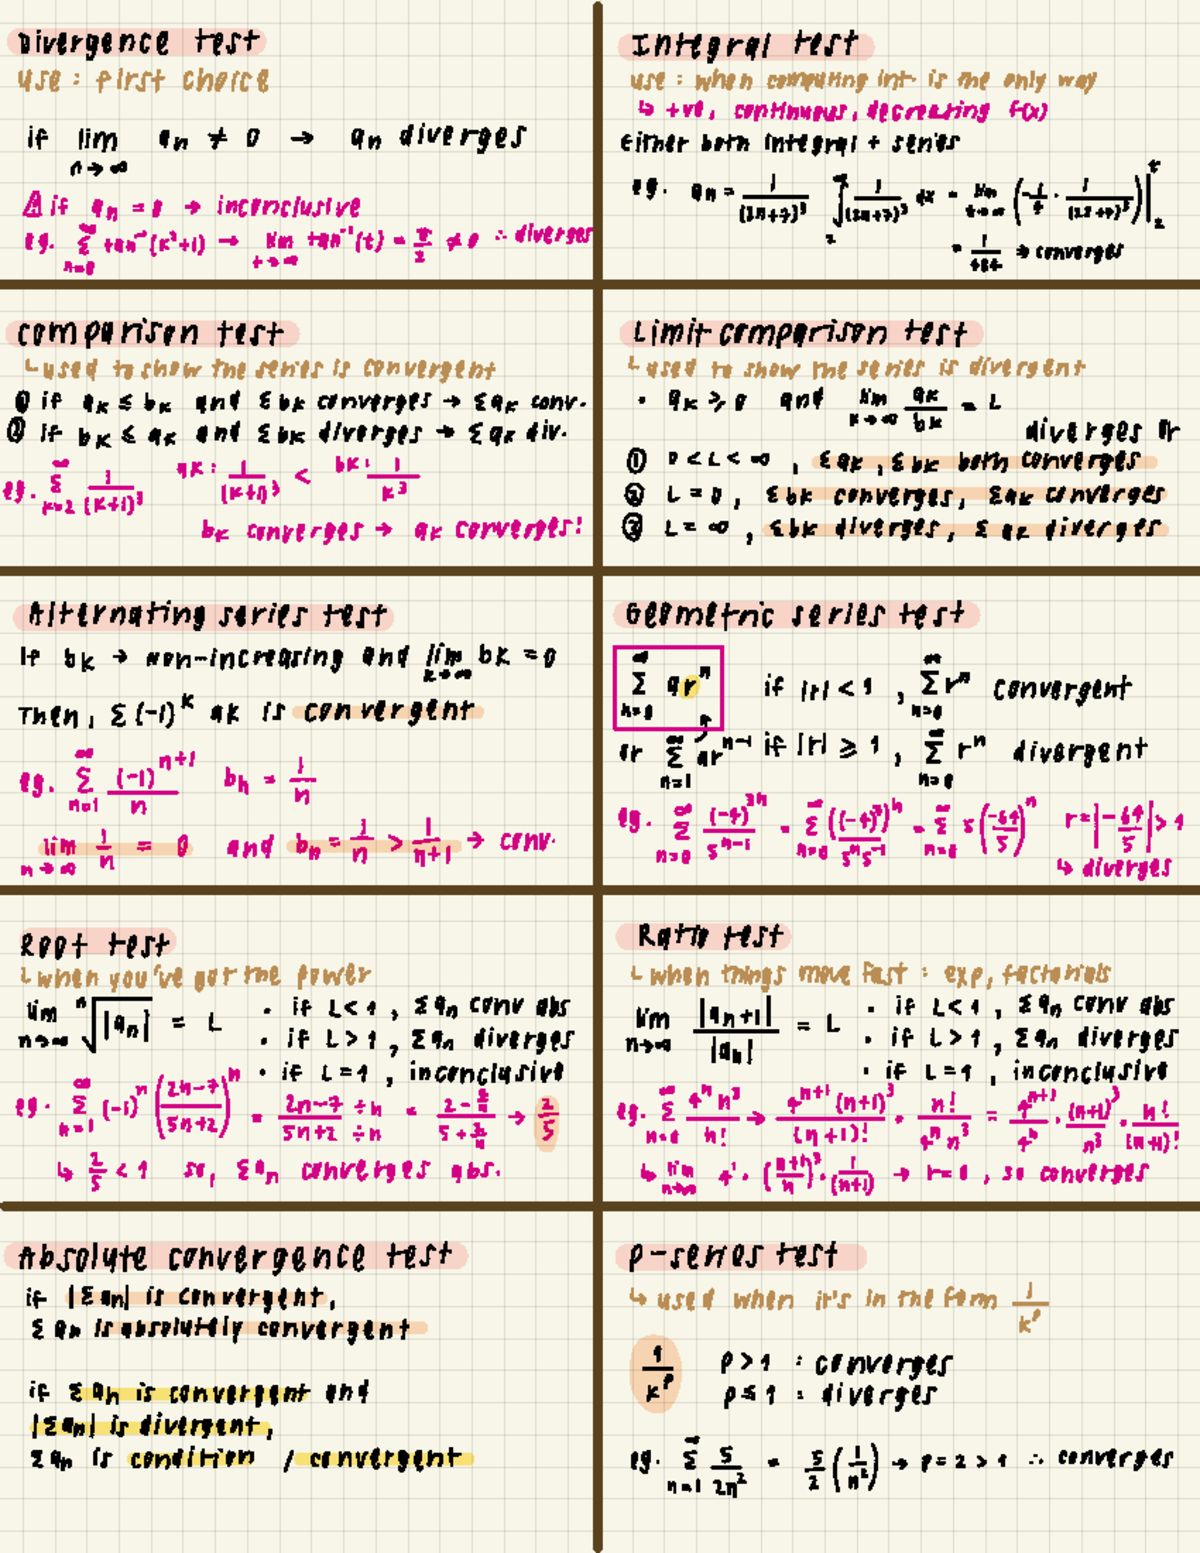 Divergence test
use: first choice
if lim n→∞ an ≠ 0 → an diverges
⚠ if an = 0 → inconclusive
eg. ∞ Σ n=0 tan⁻¹(k²+1) → lim t→∞ tan⁻¹(t) = π/2 ≠ 0 ∴ diverges
Integral test
use: when computing int. is the only way
↳ +ve, continuous, decreasing f(x)
Either both integral + series
eg. an = 1/(2n+7)³ ∫ 2 ∞ 1/(2n+7)³ dx = lim t→∞ (-1/4 · 1/(2x+7)²)| t 2
= 1/484 → converges
comparison test
↳ used to show the series is convergent
① if ak ≤ bk and Σbk converges → Σak conv.
② if bk ≤ ak and Σbk diverges → Σak div.
eg. ∞ Σ k=2 1/(k+1)³ ak: 1/(k+1)³ < bk: 1/k³
bk converges → ak converges!
Limit comparison test
↳ used to show the series is divergent
· ak ≥ 0 and lim k→∞ ak/bk = L
diverges or
① 0 < L < ∞ , Σak, Σbk both converges
② L = 0, Σbk converges, Σak converges
③ L = ∞ , Σbk diverges, Σak diverges
Alternating series test
If bk → non-increasing and lim k→∞ bk = 0
Then, Σ(-1)ᵏ ak is convergent
eg. ∞ Σ n=1 (-1)ⁿ⁺¹/n bn = 1/n
lim n→∞ 1/n = 0 and bn = 1/n > 1/n+1 → conv.
Geometric series test
∞ Σ n=0 arⁿ if |r| < 1 , ∞ Σ n=0 rⁿ convergent
or ∞ Σ n=1 arⁿ⁻¹ if |r| ≥ 1 , ∞ Σ n=0 rⁿ divergent
eg. ∞ Σ n=0 (-4)³ⁿ/5ⁿ⁻¹ = ∞ Σ n=0 ((-4)³)ⁿ/5ⁿ5⁻¹ = ∞ Σ n=0 5(-64/5)ⁿ r = |-64/5| > 1
↳ diverges
Root test
↳ when you've got the power
lim n→∞ ⁿ√|an| = L · if L < 1 , Σan conv abs
· if L > 1 , Σan diverges
· if L = 1 , inconclusive
eg. ∞ Σ n=1 (-1)ⁿ (2n-7/5n+2)ⁿ = 2n-7 ÷n/5n+2 ÷n = 2-7/n/5+2/n → 2/5
↳ 2/5 < 1 so, Σan converges abs.
Ratio test
↳ when things move fast : exp, factorials
lim n→∞ |an+1|/|an| = L · if L < 1 , Σan conv abs
· if L > 1 , Σan diverges
· if L = 1 , inconclusive
eg. ∞ Σ n=0 4ⁿ n³/n! → 4ⁿ⁺¹ (n+1)³/(n+1)! · n!/4ⁿ n³ = 4ⁿ⁺¹/4ⁿ · (n+1)³/n³ · n!/(n+1)!
↳ lim n→∞ 4¹ · (n+1/n)³ · 1/(n+1) → r = 0 , so converges
Absolute convergence test
if |Σan| is convergent,
Σan is absolutely convergent
if Σan is convergent and
|Σan| is divergent,
Σan is condition / convergent
p-series test
↳ used when it's in the form 1/kᵖ
1/kᵖ p > 1 : converges
p ≤ 1 : diverges
eg. ∞ Σ n=1 5/2n² = 5/2 (1/n²) → p = 2 > 1 ∴ converges